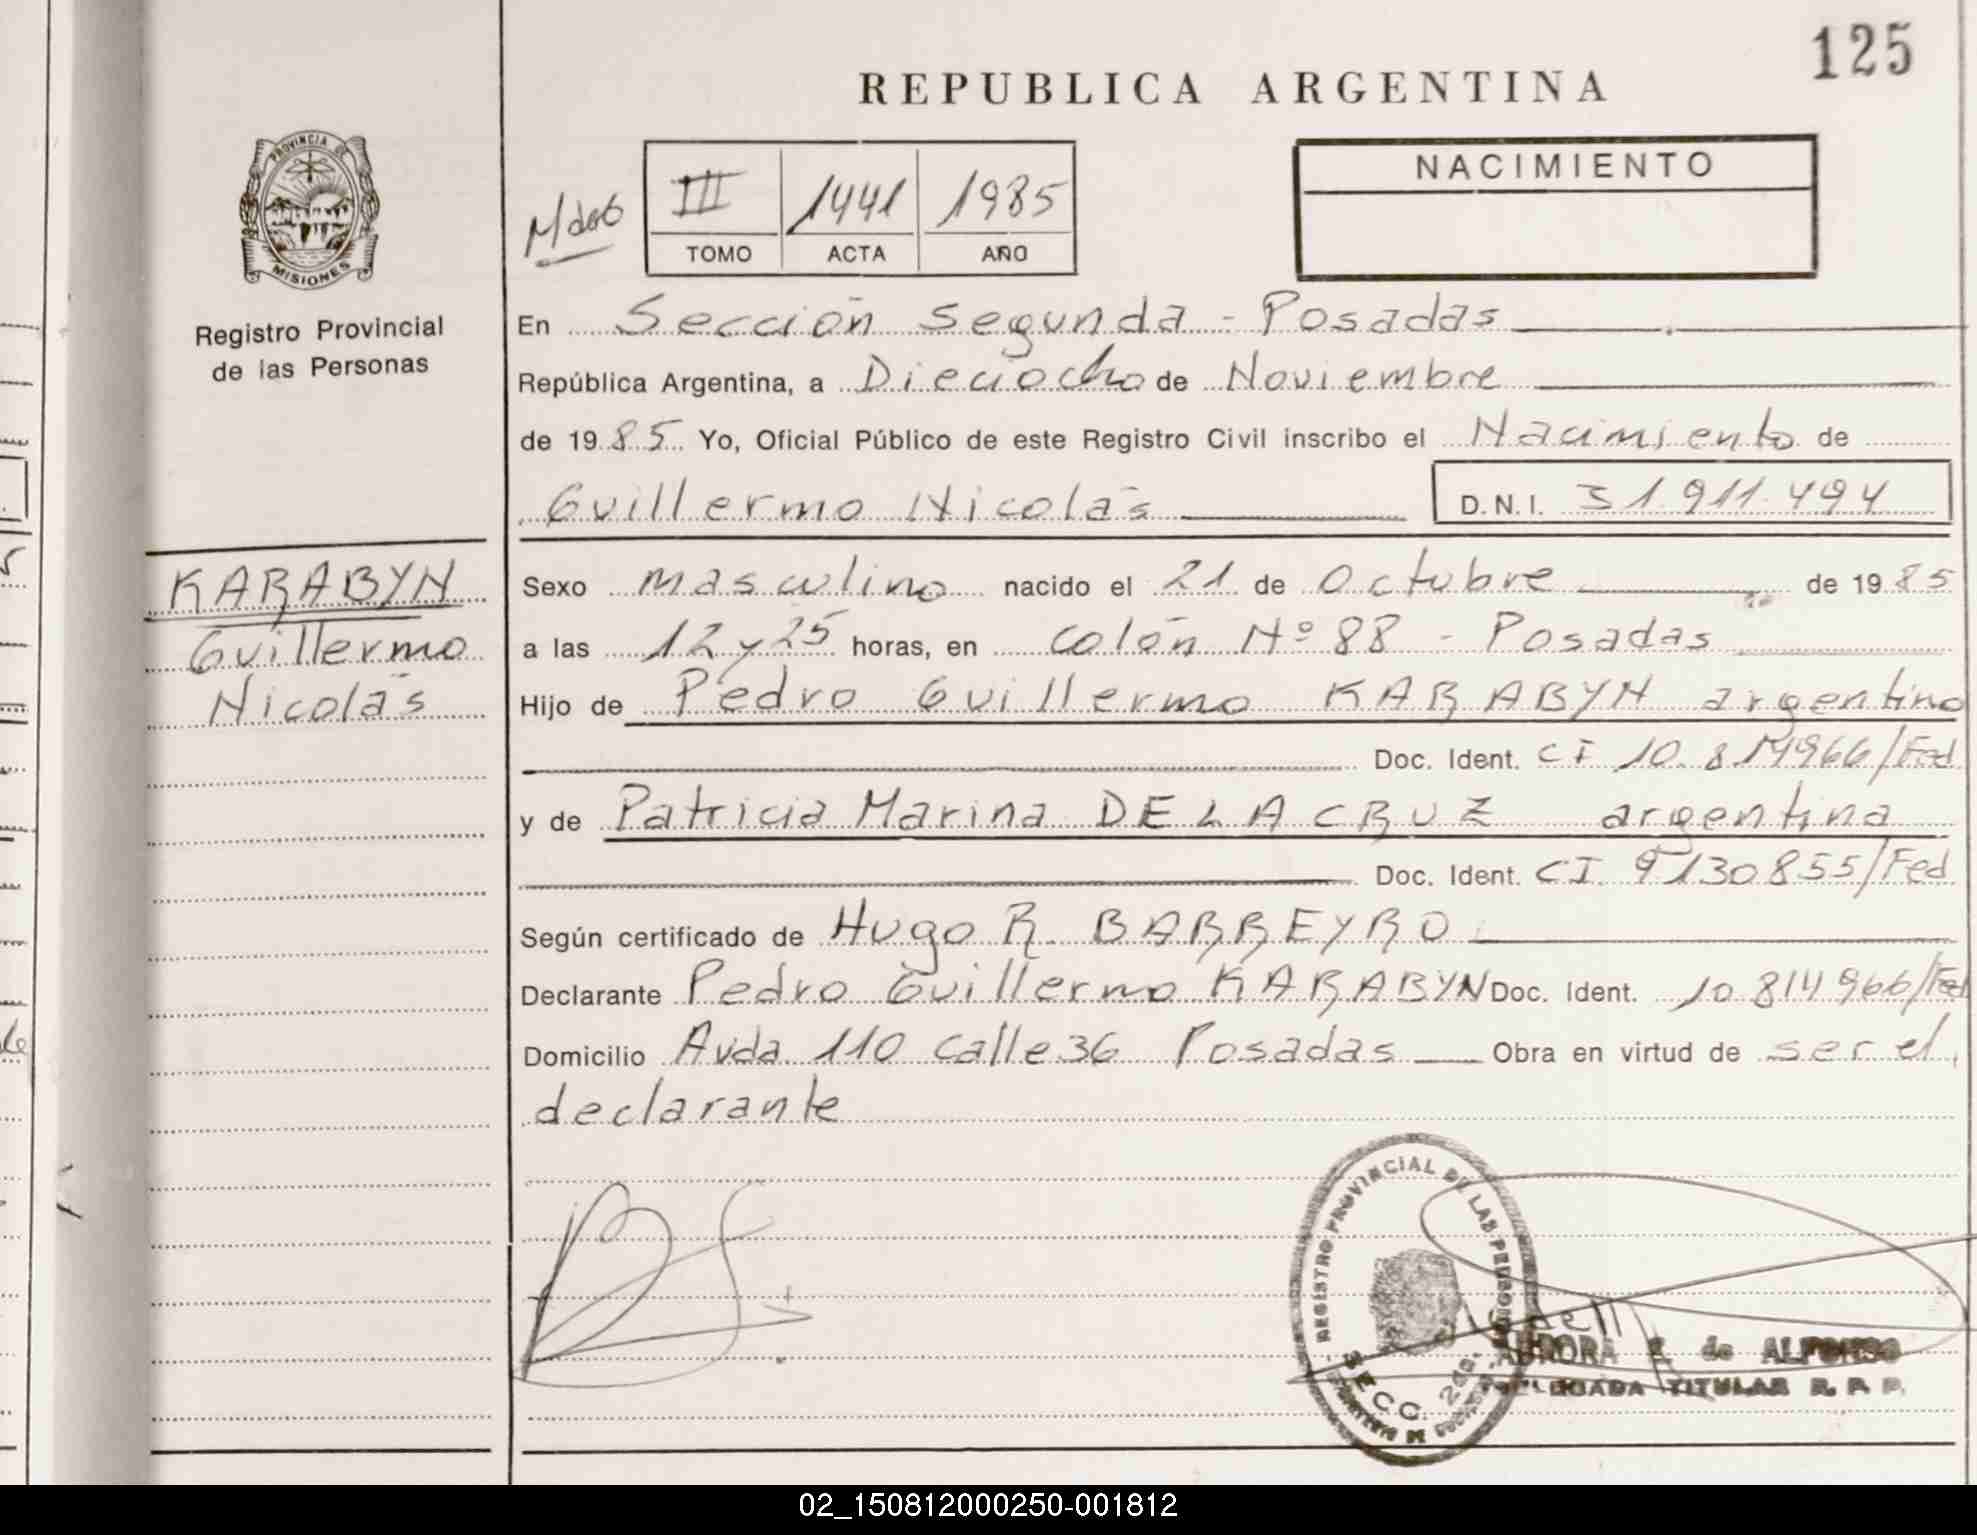 125
REPUBLICA ARGENTINA
PROVINCIA DE
MISIONES
Registro Provincial
de las Personas
III 1441 1985
TOMO ACTA AÑO
NACIMIENTO
En Sección Segunda - Posadas
República Argentina, a Dieciocho de Noviembre
de 1985 Yo, Oficial Público de este Registro Civil inscribo el Nacimiento de
Guillermo Nicolás D.N.I. 31.911.494
KARABYN
Guillermo
Nicolás
Sexo masculino nacido el 21 de Octubre de 1985
a las 12 y 25 horas, en Colón Nº 88 - Posadas
Hijo de Pedro Guillermo KARABYN argentino
Doc. Ident. CI 10.814966/Fed
y de Patricia Marina DE LA CRUZ argentina
Doc. Ident. CI. 9130855/Fed
Según certificado de Hugo R. BARREYRO
Declarante Pedro Guillermo KARABYN Doc. Ident. 10814966/Fed
Domicilio Avda 110 calle 36 Posadas Obra en virtud de ser el
declarante
REGISTRO PROVINCIAL DE LAS PERSONAS
SECC. 2da.
AURORA de ALFONSO
DELEGADA TITULAR R. P. P.
02_150812000250-001812